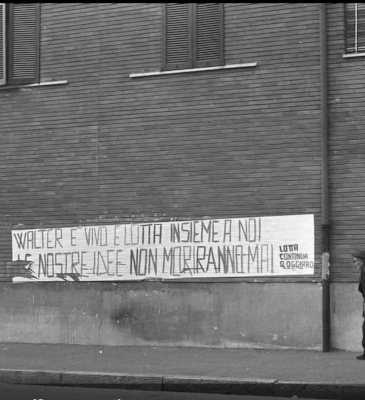 WALTER E' VIVO E LOTTA INSIEME A NOI
LE NOSTRE IDEE NON MORIRANNO MAI
LOTTA
CONTINUA